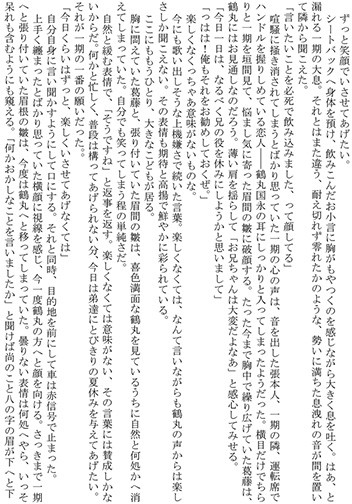 ずっと笑顔でいさせてあげたい。
　シートバックへ身体を預け、飲みこんだお小言に胸がもやつくのを感じながら大きく息を吐く。はあ、と
漏れる一期の大息。それとはまた違う、耐え切れず零れたかのような、勢いに満ちた息洩れの音が間を置い
て隣から聞こえた。
「言いたいことを必死で飲み込みました、って顔してる」
　喧騒に掻き消されてしまうとばかり思っていた一期の心の声は、音を出した張本人、一期の隣、運転席で
ハンドルを握りしめている恋人――鶴丸国永の耳にしっかりと入ってしまったようだった。横目だけでちら
りと一期を垣間見て、悩まし気に寄った眉間の皺に破顔する。たった今まで胸中で繰り広げていた葛藤は、
鶴丸にはお見通しなのだろう。薄い肩を揺らして「お兄ちゃんは大変だよなあ」と感心してみせる。
「今日一日は、なるべく兄の役を休みにしようかと思いまして」
「っはは！俺もそれをお勧めしておくぜ。」
　楽しくなくっちゃあ意味がないものな。
　今にも歌い出しそうな上機嫌さで続いた言葉。楽しくなくては、なんて言いながらも鶴丸の声からは楽し
さしか聞こえない。その表情も期待と高揚で鮮やかに彩られている。
　ここにももうひとり、大きなこどもが居る。
　胸に閊えていた葛藤と、張り付いていた眉間の皺は、喜色満面な鶴丸を見ているうちに自然と何処かへ消
えてしまっていた。自分でも笑ってしまう程の単純さだ。
　自然と緩む表情で、「そうですね」と返事を返す。楽しくなくては意味がない、その言葉には賛成しかな
いからだ。何かと忙しく、普段は構ってあげられない分、今日は弟達にとびきりの夏休みを与えてあげたい。
それが一期の一番の願いだった。。
「今日くらいはずっと、楽しくいさせてあげなくては」
　自分自身に言い聞かすようにして口にする。それと同時、目的地を前にして車は赤信号で止まった。
　上手く纏まったとばかり思っていた横顔に視線を感じ、今一度鶴丸の方へと顔を向ける。さっきまで一期
へと張り付いていた眉根の皺は、今度は鶴丸へと移ってしまっていた。曇りない表情は何処へやら、いっそ
呆れも含むようにも窺える。「何かおかしなことを言いましたか」と聞けば尚のこと八の字の眉が下へと下